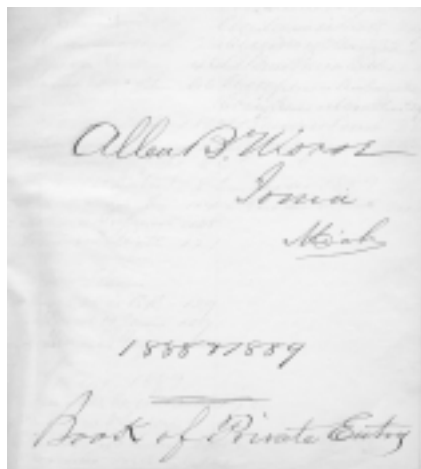 Allen B. Morse
Ionia
Mich
1888 & 1889
Book of Private Entry